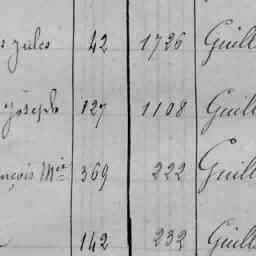 Jules 42 1736 Guill
Joseph 127 1108 Guill
nçois Mie 369 222 Guill
142 232 Guill